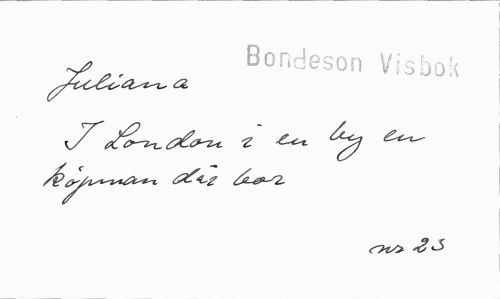 Bondeson Visbok
Juliana
I London i en by en
köpman där bor
nr 23